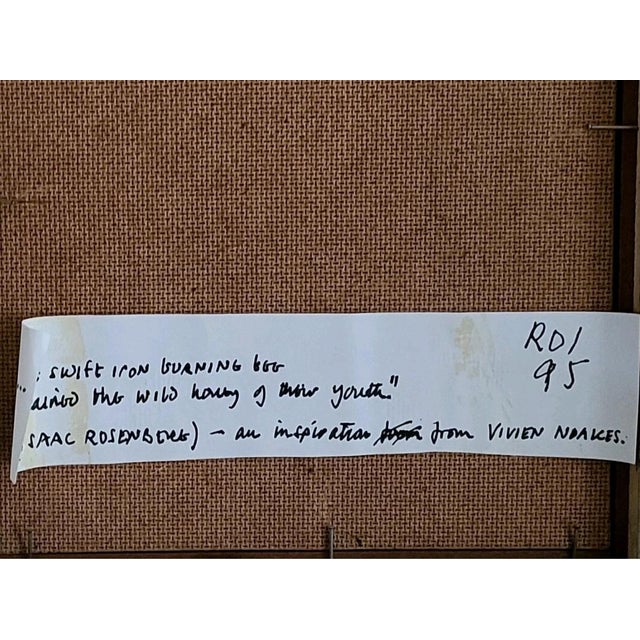 : SWIFT IRON BURNING BEE
"ained the wild honey of their youth."
SAAC ROSENBERG) - an inspiration from VIVIEN NOAKES.
RDI
95